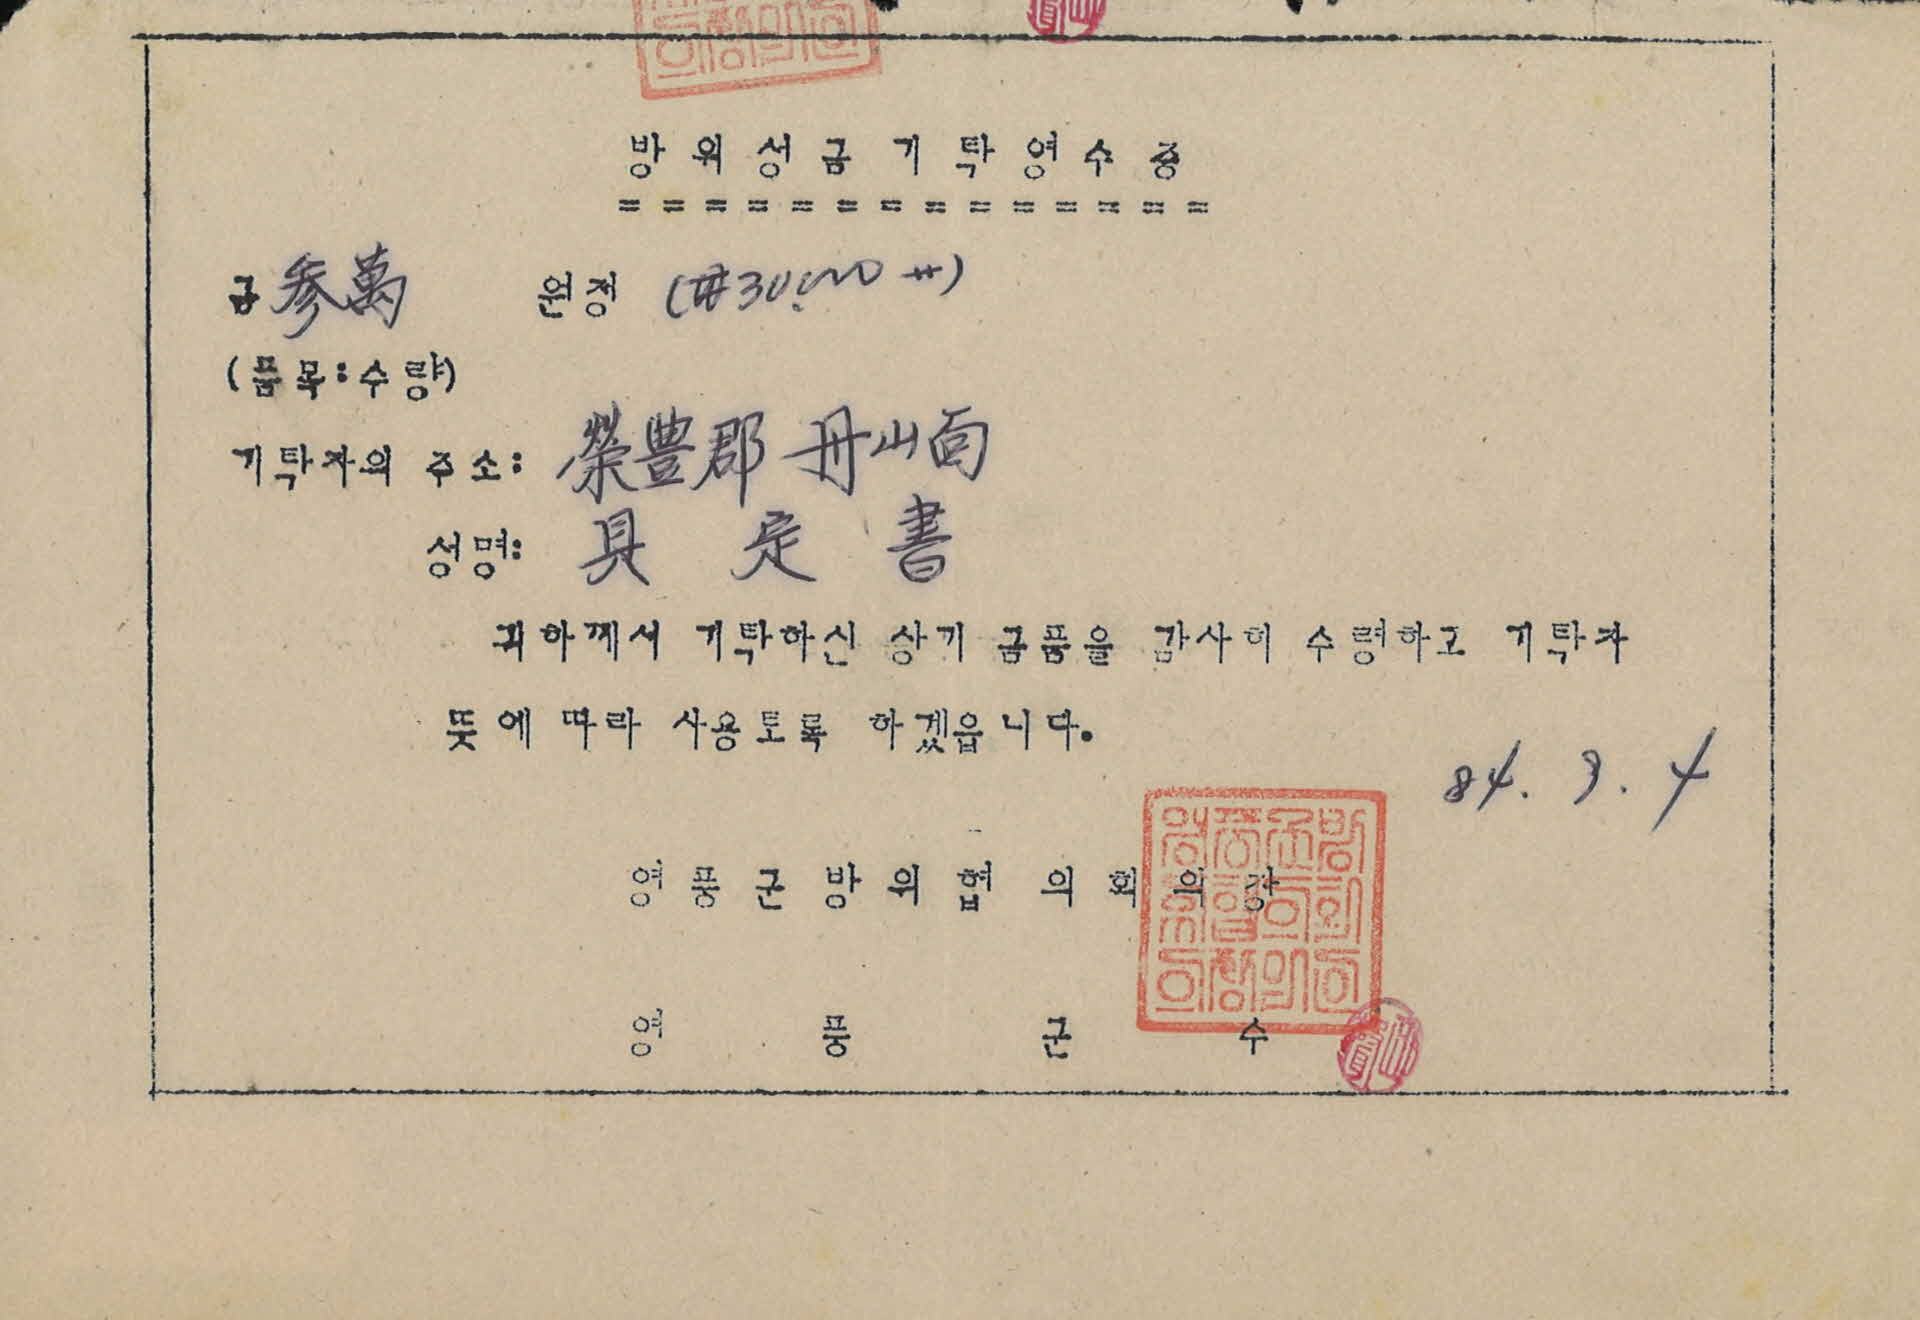 방위성금기탁영수증
금 参萬 원정 (#30,000#)
(품목:수량)
기탁자의 주소: 榮豊郡 丹山面
성명: 具 定 書
귀하께서 기탁하신 상기 금품을 감사히 수령하고 기탁자
뜻에 따라 사용토록 하겠읍니다.
84. 3. 4
영풍군방위협의회의장
영풍군수